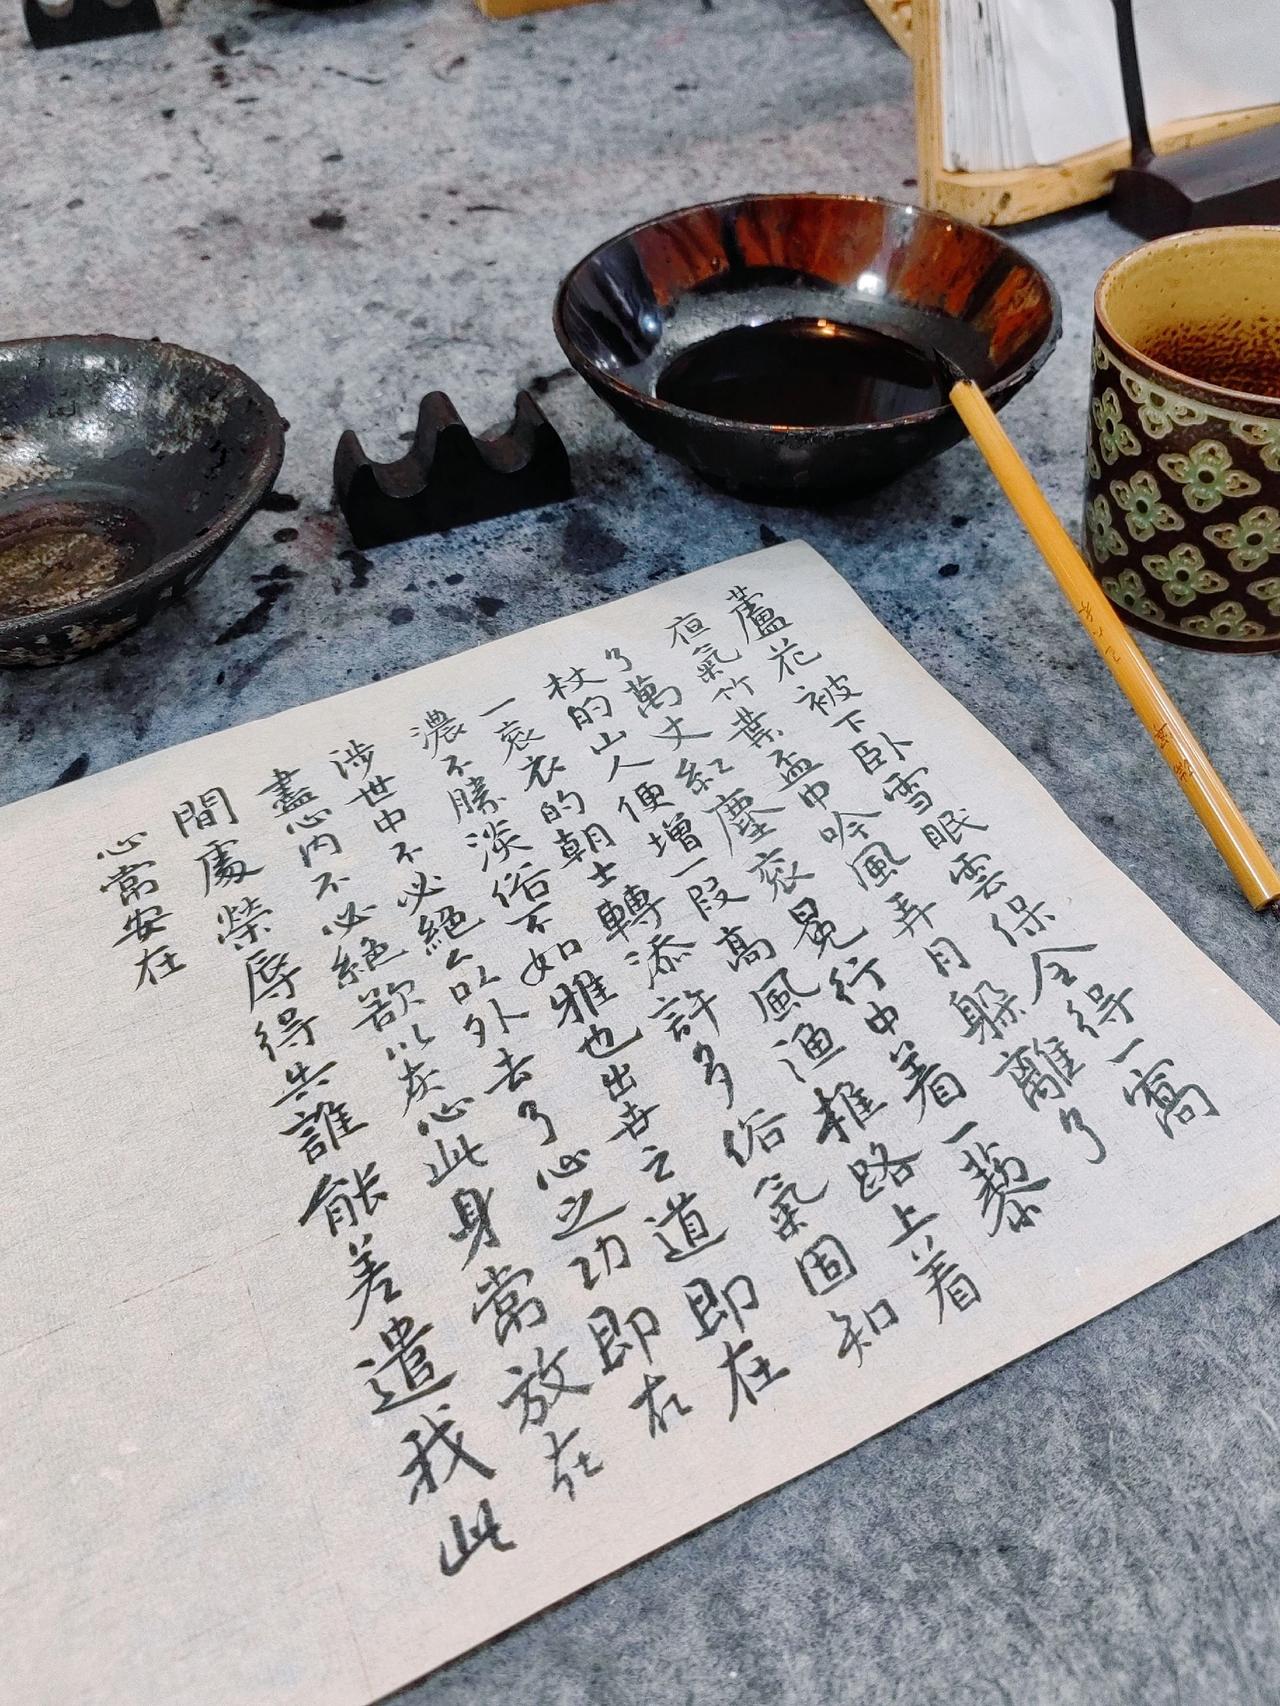 蘆花被下臥雪眠雲保全得一窩
夜氣竹葉盃中吟風弄月躲離了
了萬丈紅塵衮冕行中着一藜
杖的山人便增一段高風漁樵路上着
一衮衣的朝士轉添許多俗氣固知
濃不勝淡俗不如雅也出世之道即在
涉世中不必絕以外去了心之功即在
盡心內不必絕欲以灰心此身常放在
間處榮辱得失誰能差遣我此
心常安在